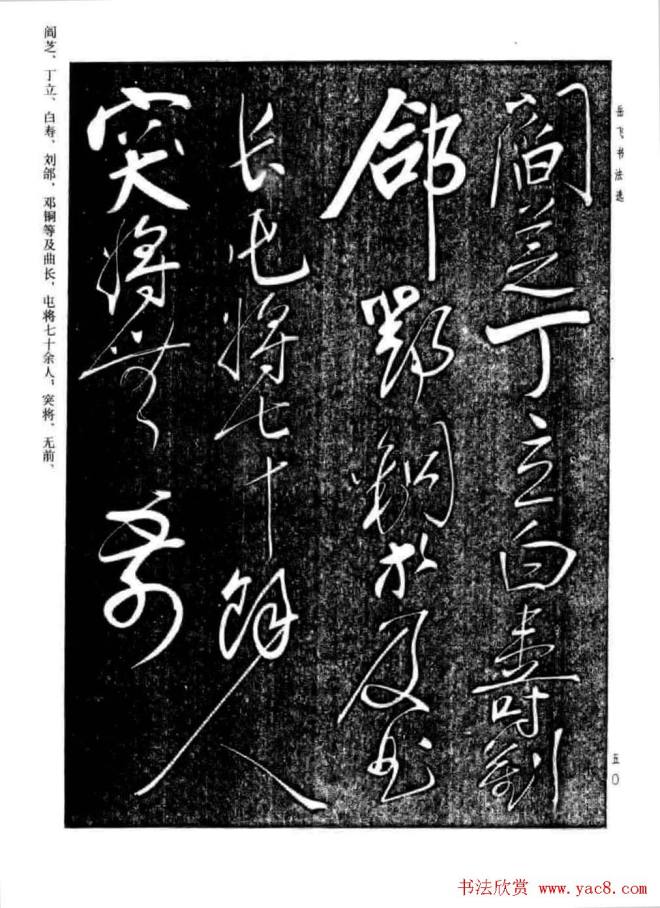 岳飞书法选
閻芝丁立白壽劉
郃鄧銅等及曲
長屯將七十餘
人突將無前
阎芝、丁立、白寿、刘郃，邓铜等及曲长，屯将七十余人；突将、无前、
五〇
书法欣赏 www.yac8.com